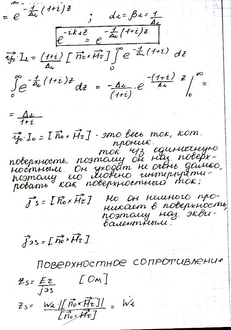 = e^{-\frac{1}{Δ_u}(1+i)z} ; α_u = β_u = \frac{1}{Δ_u}
e^{-ikz} = e^{-\frac{1}{Δ_u}(1+i)z}
I_0 = \frac{(1+i)}{Δ_u} [n_0 × H_τ] ∫_0^∞ e^{-\frac{1}{Δ_u}(1+i)z} dz
∫_0^∞ e^{-\frac{1}{Δ_u}(1+i)z} dz = \frac{-Δ_u}{(1+i)} · e^{-\frac{1}{Δ_u}(1+i)z} |_0^∞ =
= \frac{Δ_u}{1+i}
I_0 = [n_0 × H_τ] - это весь ток, кот.
проник.
ток чз единичную
поверхность, поэтому он наз. поверх-
ностным. Он уходит не очень далеко,
поэтому его можно интерпрети-
ровать как поверхностный ток;
j_s = [n_0 × H_τ] Но он немного про-
никает в поверхность,
поэтому наз. экви-
валентным.
j_{эs} = [n_0 × H_τ]
ПОВЕРХНОСТНОЕ СОПРОТИВЛЕНИ
z_s = \frac{E_τ}{j_{эs}} [Ом]
z_s = \frac{W_2 |[n_0 × H_τ]|}{|[n_0 × H_τ]|} = W_2